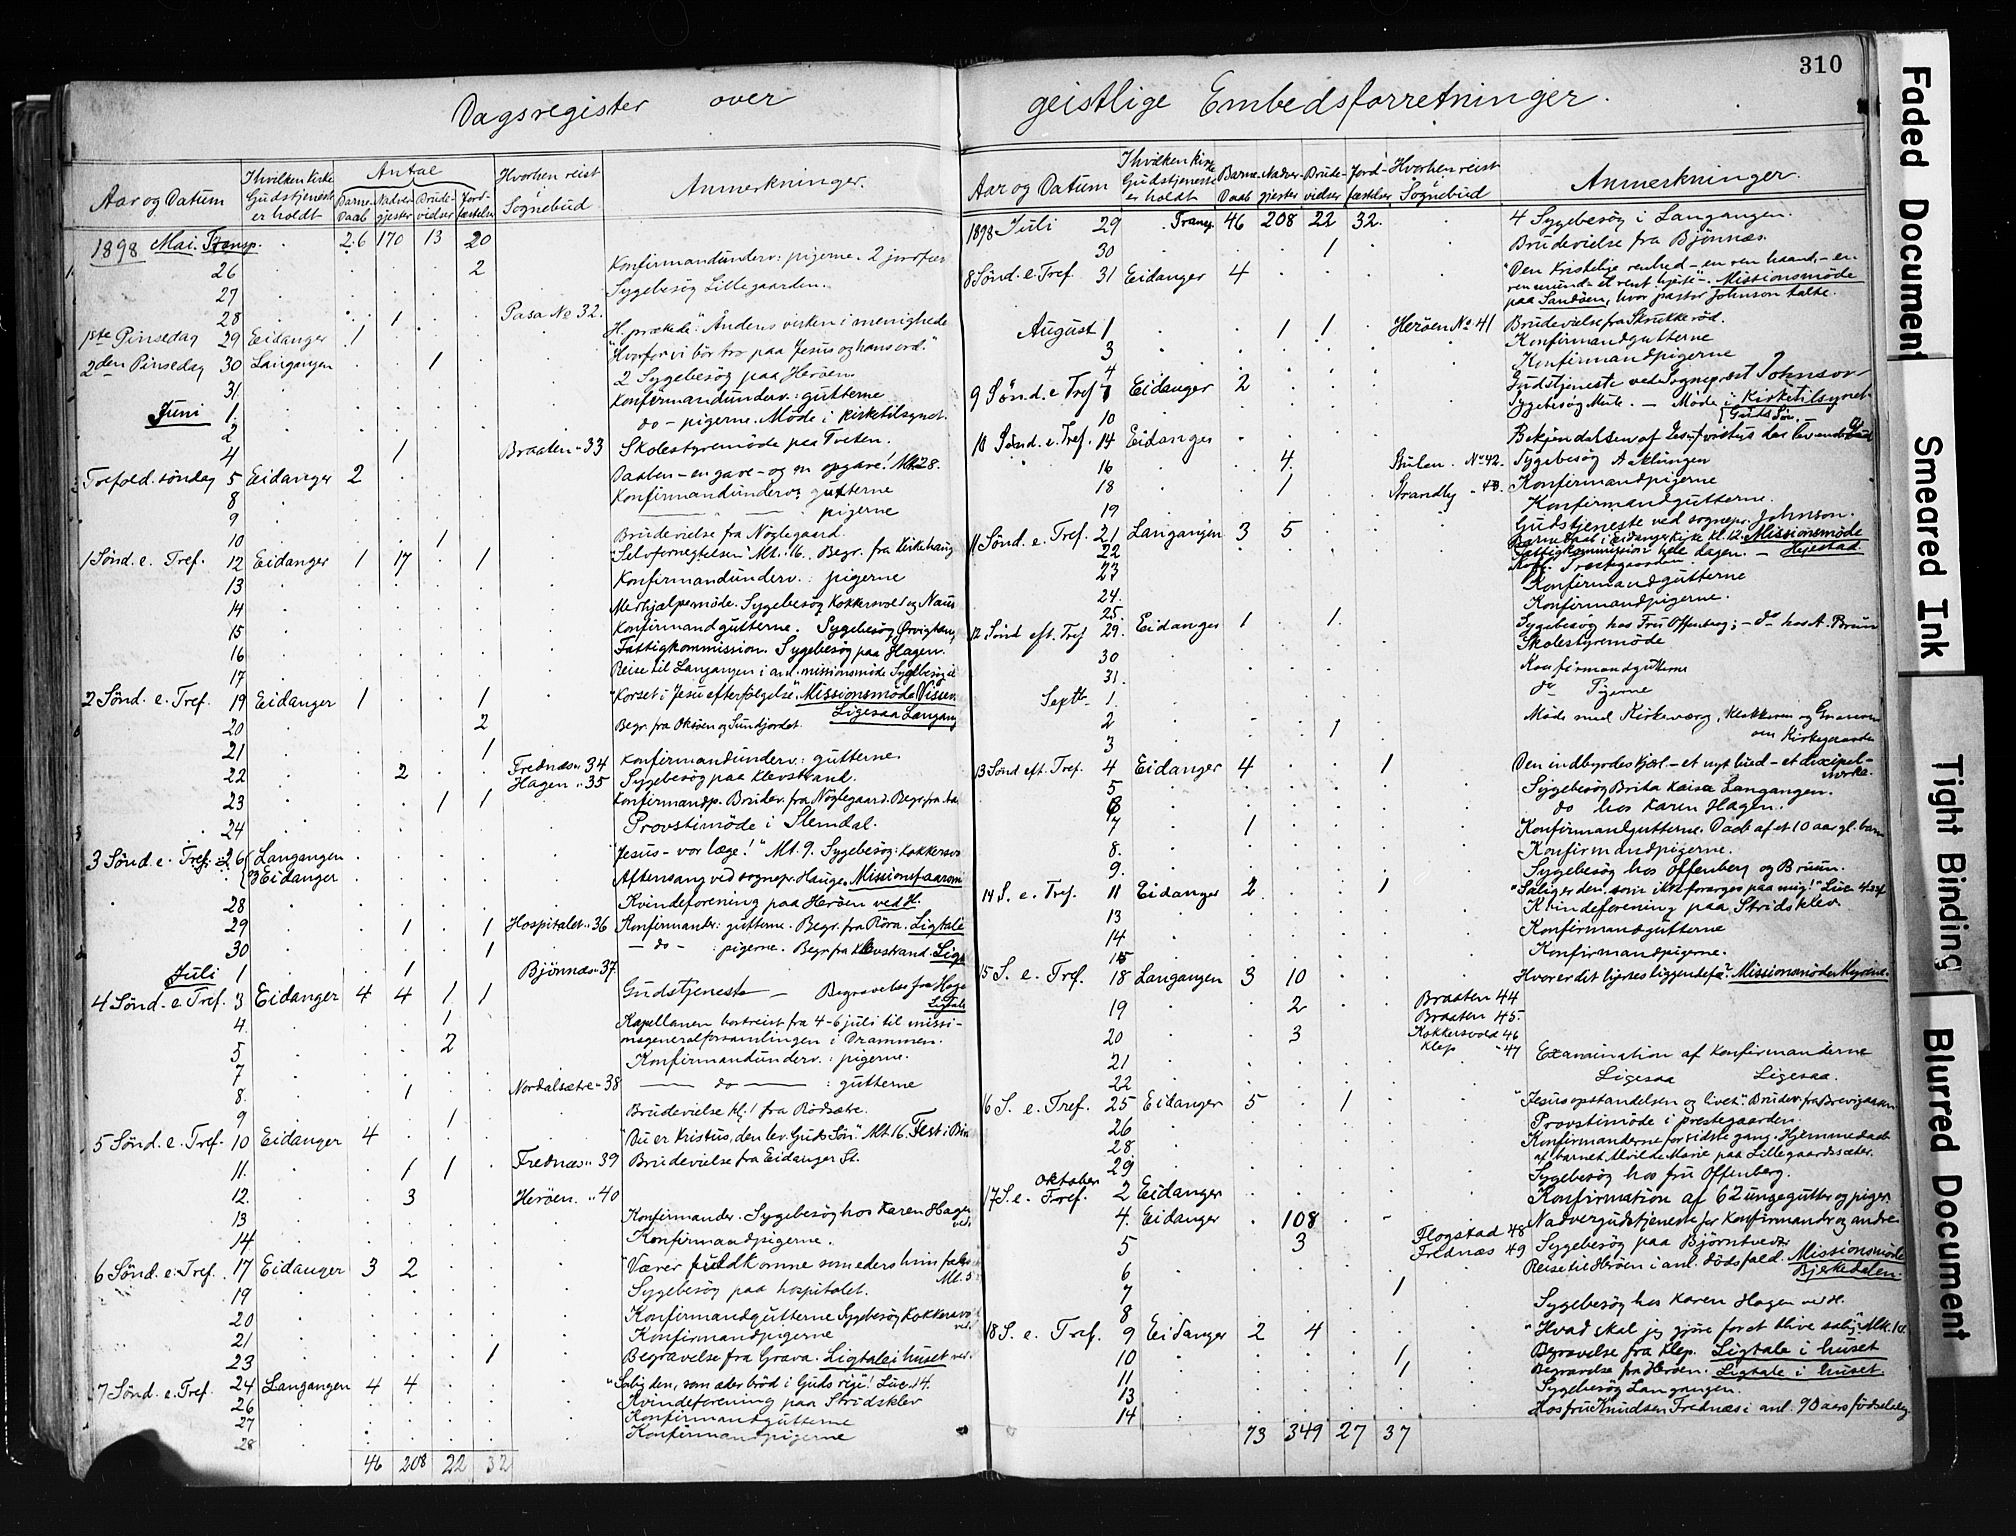 310
Dagsregister over geistlige Embedsforretninger.
Aar og Datum
I hvilken Kirke Gudstjeneste er holdt
Antal
Barne-Daab
Nadver-gjester
Brude-vielser
Jord-fæstelser
Hvorhen reist i Sognebud
Anmerkninger.
1898 Mai. Transp. 26 170 13 20
26 2 Konfirmandunderv: pigerne. 2 jordfæs
27 Sygebesøg Lillegaarden.
28 1 Pasa No 32.
1ste Pinsedag 29 Eidanger 1 H. prækede: Aandens virken i menighede
2den Pinsedag 30 Langangen 1 "Hvorfor vi bør tro paa Jesus og hans ord."
31 2 Sygebesøg paa Herøen
Juni 1. Konfirmandunderv: gutterne
2 do - pigerne. Møde i Kirketilsynet.
4 1 Braaten " 33 Skolestyremøde paa Tveten.
Trefold. søndag 5 Eidanger 2 Daaben - en gave - og en opgave! Mt. 28.
8 Konfirmandunderv: gutterne
9 " pigerne
10 1 Brudevielse fra Nøglegaard.
1 Sønd. e. Tref. 12 Eidanger 1 17 1 "Selvfornegtelsen" Mt. 16. Begr. fra Kirkehaug
13 Konfirmandunderv.: pigerne
14 Merhjælpsmøde. Sygebesøg Kokkersvold og Naus
15 Konfirmandgutterne. Sygebesøg Ørvighaug
16 Fattigkommission. Sygebesøg paa Hagen.
17 Reise til Langangen i anl. missionsmøde Sygebesøg
2 Sønd. e. Tref. 19 Eidanger 1 1 "Korset i Jesu efterfølgelse." Missionsmøde Vissen
Ligesaa Langang
20 2 Begr. fra Oksøen og Sundjordet.
21 1
22 2 Frednæs " 34 Konfirmandunderv: gutterne
Hagen " 35 Sygebesøg paa Klevstrand.
23 1 1 Konfirmandp. Brudev. fra Nøglegaard. Begr. fra
24 Provstimøde i Slemdal.
3 Sønd. e. Tref. 26 Langangen "Jesus - vor læge!" Mt. 9. Sygebesøg: Kokkersvo
Eidanger Aftensang ved sognepr. Hauge. Missionsfaarom
28 Kvindeforening paa Herøen ved H.
29 1 1 Hospitalet " 36 Konfirmander: gutterne. Begr. fra Røra. Ligtale
30 1 - do - : pigerne. Begr. fra Klevstrand. Ligt
Juli 1 1 Bjønnæs " 37
4 Sønd. e. Tref. 3 Eidanger 4 4 1 1 Gudstjeneste - Begravelse fra Hage
Ligtale
4. 1 Kapellanen bortreist fra 4-6 juli til missi-
5 2 onsgeneralforsamlingen i Drammen.
7 Konfirmandunderv.: pigerne.
8. 1 Nordalsætre " 38 - do - : gutterne
9 1 Brudevielse kl. 1 fra Rødsætre.
5 Sønd. e. Tref. 10 Eidanger 4 "Du er Kristus, den lev. Guds Søn." Mt. 16. Fest i
11. 1 1 Frednæs " 39 Brudevielse fra Eidanger St.
12. 3 Herøen. " 40
13 Konfirmander. Sygebesøg hos Karen Hagen
14 Konfirmandpigerne.
6 Sønd. e. Tref. 17 Eidanger 3 2 "Værer fuldkomne som eders himfader
Mt. 5
19 Sygebesøg paa hospitalet.
20 Konfirmandgutterne Sygebesøg Kokkersvo
21 Konfirmandpigerne
23 1 Begravelse fra Grava. Ligtale i huset
7 Sønd. e. Tref. 24 Langangen 4 4 "Salig den, som æder brød i Guds rige! Luc. 14.
26 Kvindeforening paa Stridsklev
27 Konfirmandgutterne
28 Konfirmandpigerne
46 208 22 32
Aar og Datum
I hvilken Kirke Gudstjeneste er holdt
Barne-Daab
Nadver-gjester
Brude-vielser
Jord-fæstelser
Hvorhen reist i Sognebud
Anmerkninger.
1898 Juli 29 Transp. 46 208 22 32. 4 Sygebesøg i Langangen.
30 1 Brudevielse fra Bjønnæs.
8 Sønd. e. Tref. 31 Eidanger 4 "Den kristelige renhed - en ren haand, - en
ren mund - et rent hjerte". - Missionsmøde
paa Sandøen, hvor pastor Johnson talte.
August 1 1 1 Herøen No 41 Brudevielse fra Skrukkerød.
3 Konfirmandgutterne
4 Konfirmandpigerne
9 Sønd. e Tref 7 Eidanger 2 Gudstjeneste ved Sogneprest Johnson
10 Sygebesøg Mule. - Møde i Kirketilsynet
Guds Søn
10 Sønd. e. Tref. 14 Eidanger Bekjendelsen af Jesus Kristus den levende
16 4. Stulen. No 42. Sygebesøg Aaklungen
18 1 Strandby " 43. Konfirmandpigerne
19 Konfirmandgutterne.
11 Sønd. e. Tref. 21 Langangen 3 5 Gudstjeneste ved sognepr. Johnson.
22 Barnedaab i Eidanger kirke kl. 12. Missionsmøde
23 Fattigkommission hele dagen. - Heiestad
24. Konfirmandgutterne
25. Konfirmandpigerne.
12 Sønd eft. Tref 29. Eidanger 1 1. Sygebesøg hos Fru Offenberg; - do hos A. Bruun
30 Skolestyremøde
31. Konfirmandgutterne
Septb. 1. do Pigerne
2 1 Møde med Kirkeværg, Klokkeren og Graveren
3 om Kirkegaarden
13 Sønd eft. Tref. 4 Eidanger 4 1 Den indbyrdes kjærl. - et nyt bud - et discipel-
mærke.
5 Sygebesøg Brita Kaisa Langangen.
6 do hos Karen Hagen.
7 1 Konfirmandgutterne. Daab af et 10 aar gl. barn
8. Konfirmandpigerne.
9. Sygebesøg hos Offenberg og Bruun.
14 S. e. Tref. 11 Eidanger 2 1 "Salig er den, som ikke forarges paa mig!" Luc.
13 Kvindeforening paa Stridsklev
14 Konfirmandgutterne
15 Konfirmandpigerne.
15 S. e. Tref. 18 Langangen 3 10 Hvor er dit hjertes liggendefæ? Missionsmøde
19 2 Braaten 44
Braaten 45.
20 3 Kokkersvold 46
Klep " 47
21 Examination af Konfirmanderne
22 Ligesaa Ligesaa.
16 S. e. Tref. 25 Eidanger 5 1 "Jesus opstandelsen og livet." Brudev. fra Brevigaasen
26 Provstimøde i prestegaarden
28 Konfirmanderne for sidste gang. Hjemmedaab
af barnet Alvilde Marie paa Lillegaardssæter.
29 Sygebesøg hos fru Offenberg.
Oktober
17 S. e. Tref. 2 Eidanger Konfirmation af 62 unge gutter og piger.
4. Eidanger 108 Nadvergudstjeneste for Konfirmandr og andre
5 3 Flogstad 48 Sygebesøg paa Bjørntvedt
Frednæs 49
6 Reise til Herøen i anl. dødsfald. Missionsmøde
Bjerkedalen.
7 1
8 Sygebesøg hos Karen Hagen ved H.
18 S. e. Tref. 9 Eidanger 2 4 "Hvad skal jeg gjøre for at blive salig" Mk. 10.
10 1 Begravelse fra Klep. Ligtale i huset
11 1 Begravelse fra Herøen. Ligtale i huset
13 Sygebesøg Langangen.
14 Hos fru Knudsen Frednæs i anl. 90 aars fødselsdag.
73 349 27 37
Faded Document
Smeared Ink
Tight Binding
Blurred Document